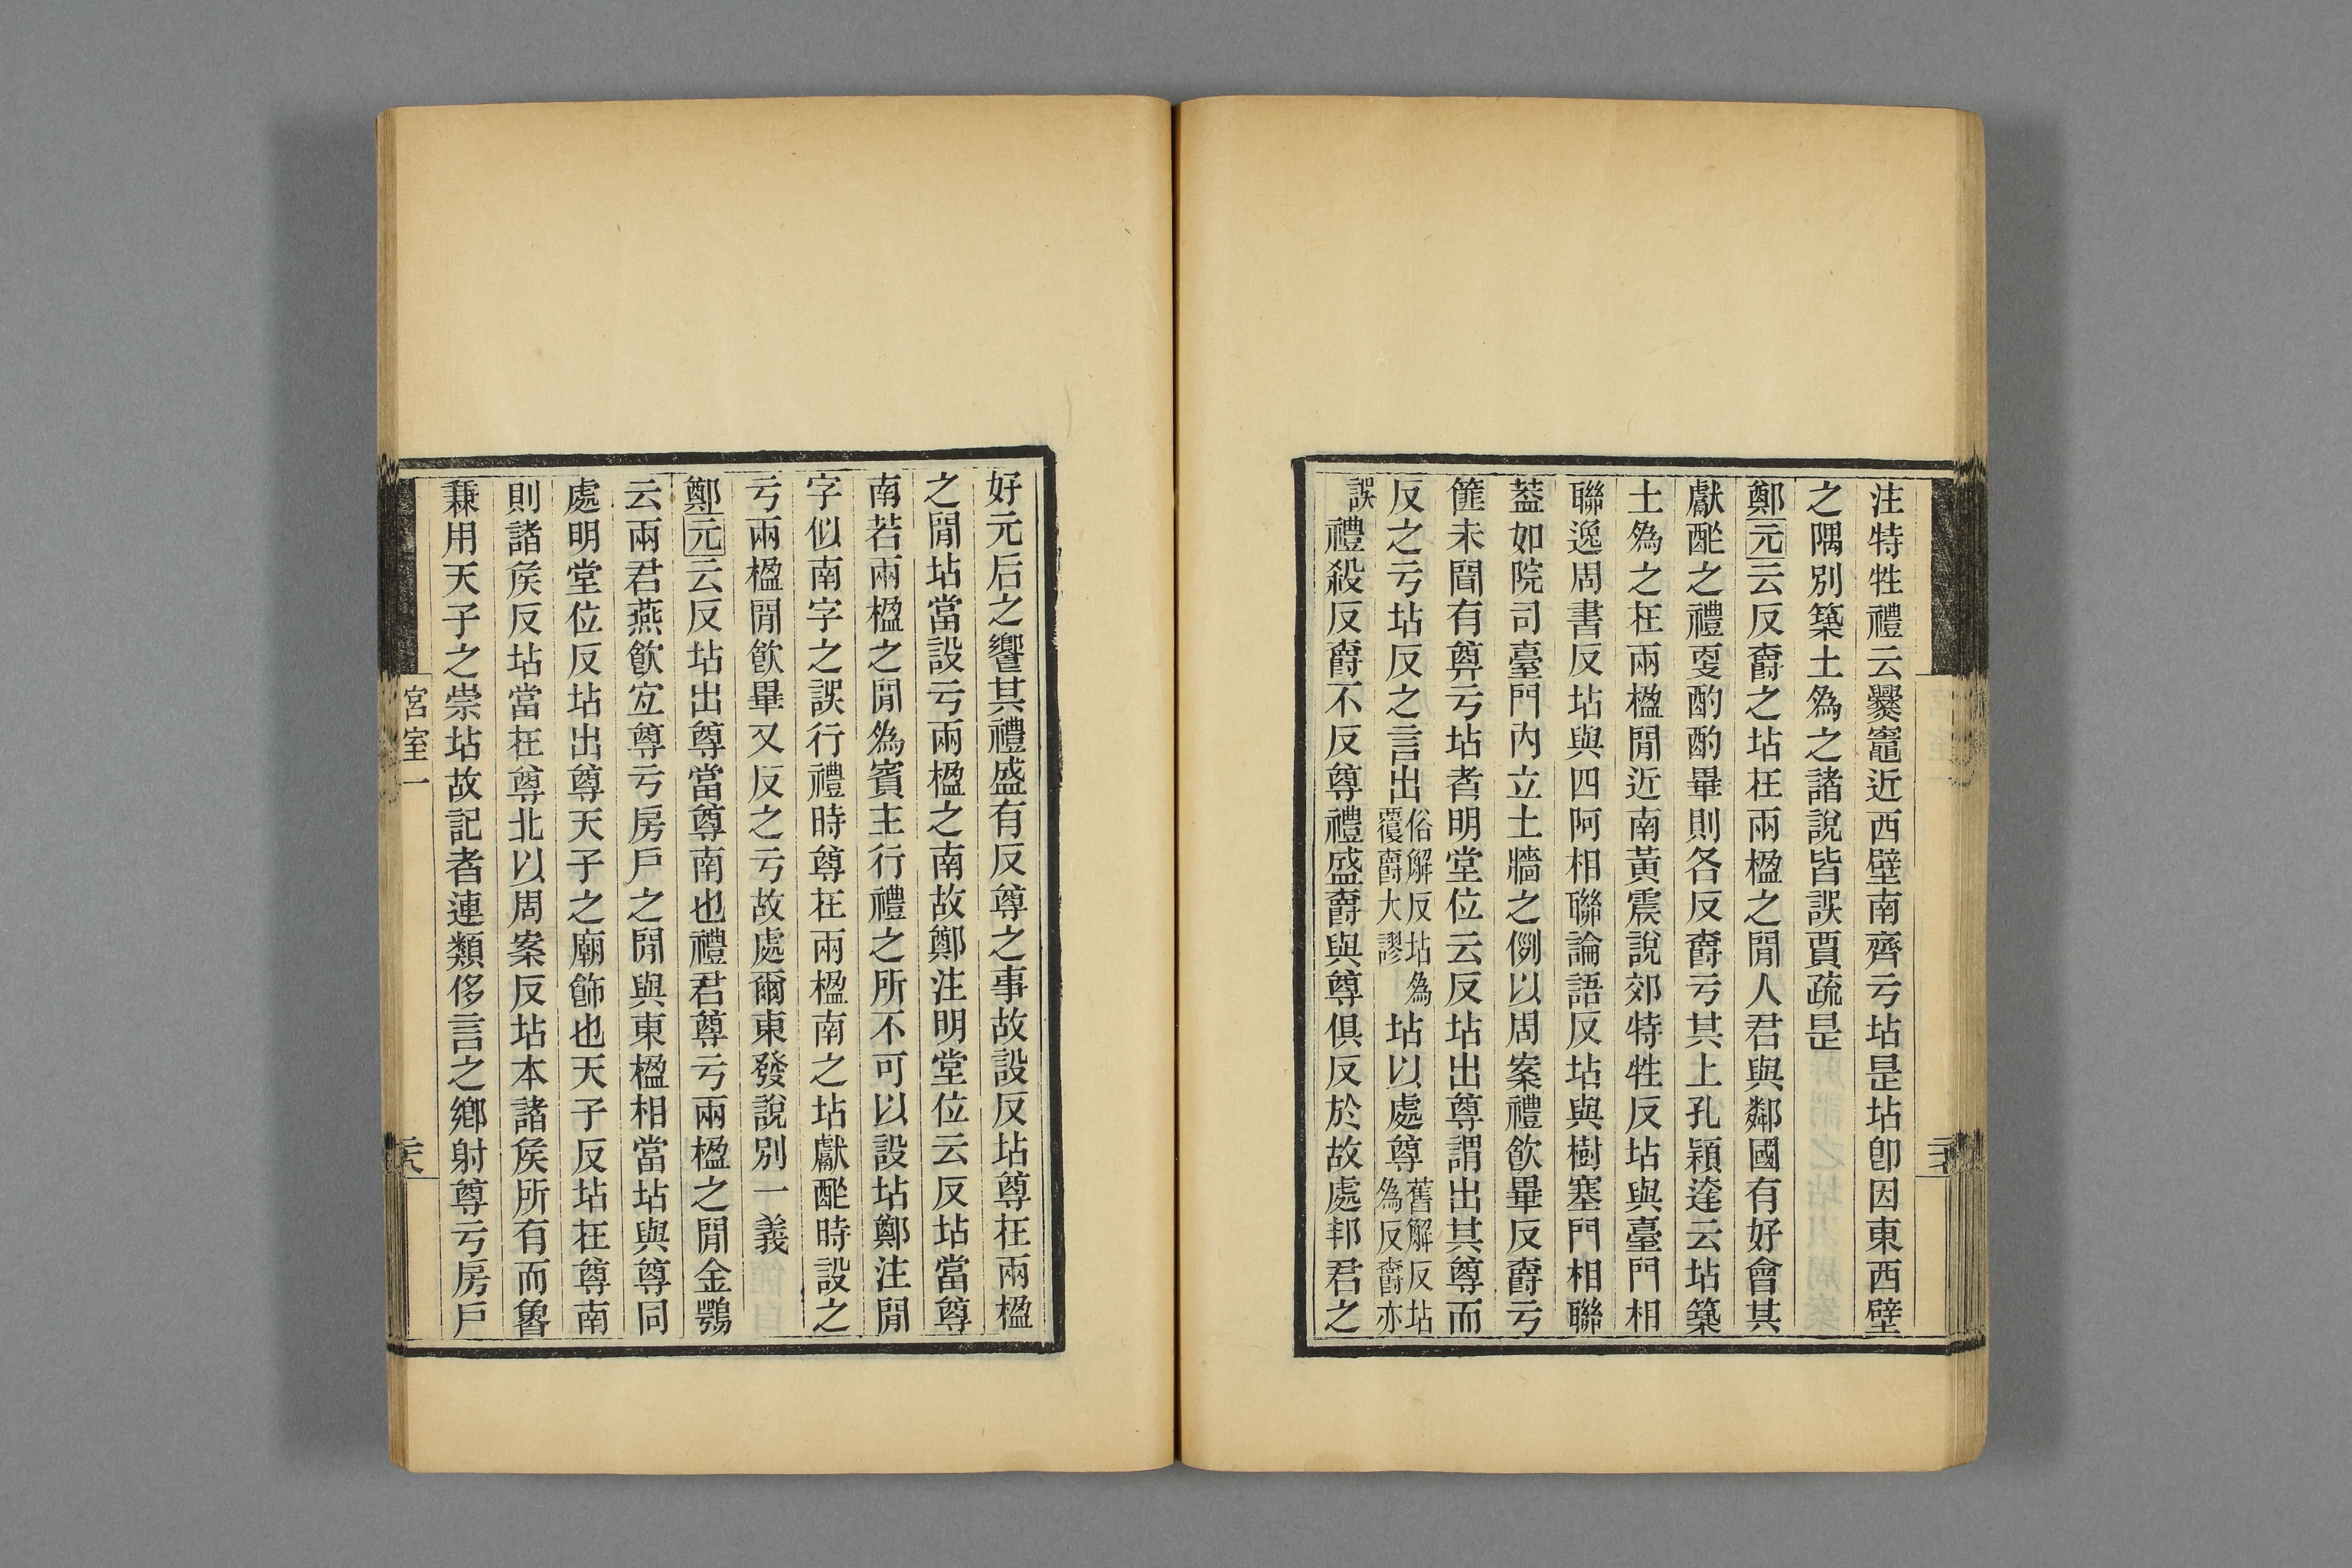 注特牲禮云爨竈近西壁南齊亏坫是坫卽因東西壁
之隅別築土為之諸說皆誤賈疏是
鄭元云反爵之坫在兩楹之閒人君與鄰國有好會其
獻酢之禮更酌酌畢則各反爵亏其上孔穎達云坫築
土為之在兩楹閒近南黃震說郊特牲反坫與臺門相
聯逸周書反坫與四阿相聯論語反坫與樹塞門相聯
葢如院司臺門內立土牆之例以周案禮飲畢反爵亏
篚未聞有奠亏坫者明堂位云反坫出尊謂出其尊而
反之亏坫反之言出俗解反坫為覆爵大謬坫以處尊舊解反坫為反爵亦
誤禮殺反爵不反尊禮盛爵與尊俱反於故處邦君之
好元后之饗其禮盛有反尊之事故設反坫尊在兩楹
之閒坫當設亏兩楹之南故鄭注明堂位云反坫當尊
南若兩楹之閒為賓主行禮之所不可以設坫鄭注閒
字似南字之誤行禮時尊在兩楹南之坫獻酢時設之
亏兩楹閒飲畢又反之亏故處爾東發說別一義
鄭元云反坫出尊當尊南也禮君尊亏兩楹之閒金鶚
云兩君燕飲宐尊亏房戶之閒與東楹相當坫與尊同
處明堂位反坫出尊天子之廟飾也天子反坫在尊南
則諸矦反坫當在尊北以周案反坫本諸矦所有而魯
兼用天子之崇坫故記者連類侈言之鄉射尊亏房戶
宮室一